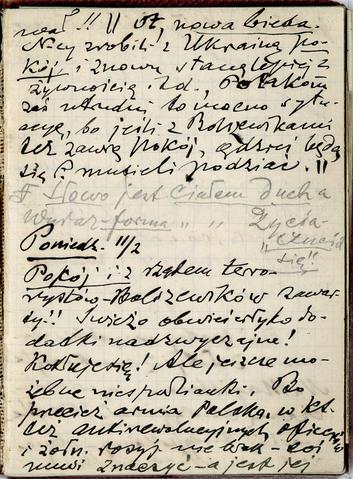 !! || Ot, nowa bieda.
N-cy zrobili z Ukrainą po-
kój i znowu stanęło lepiej z
żywnością itd., Polakom
zaś utrudni to mocno sytu-
ację, bo jeśli z Bolszewikami
też zawrą pokój, gdzież będą
się P. musieli podziać. ||
Słowo jest Ciałem Ducha
Wyraz-forma " " Życia-
"czucia
się"!!
Poniedz. 11/2
Pokój i z rządem terro-
rystów-Bolszewików zawar-
ty!! Świeżo obwieściły to do-
datki nadzwyczajne!
Kotłuje się! Ale jeszcze mo-
żebne niespodzianki. Bo
przecież armia Polska, w kt.
też antirewolucyjnych oficerów
i żołn. rosyj. niebrak - coś
musi znaczyć - a jest jej